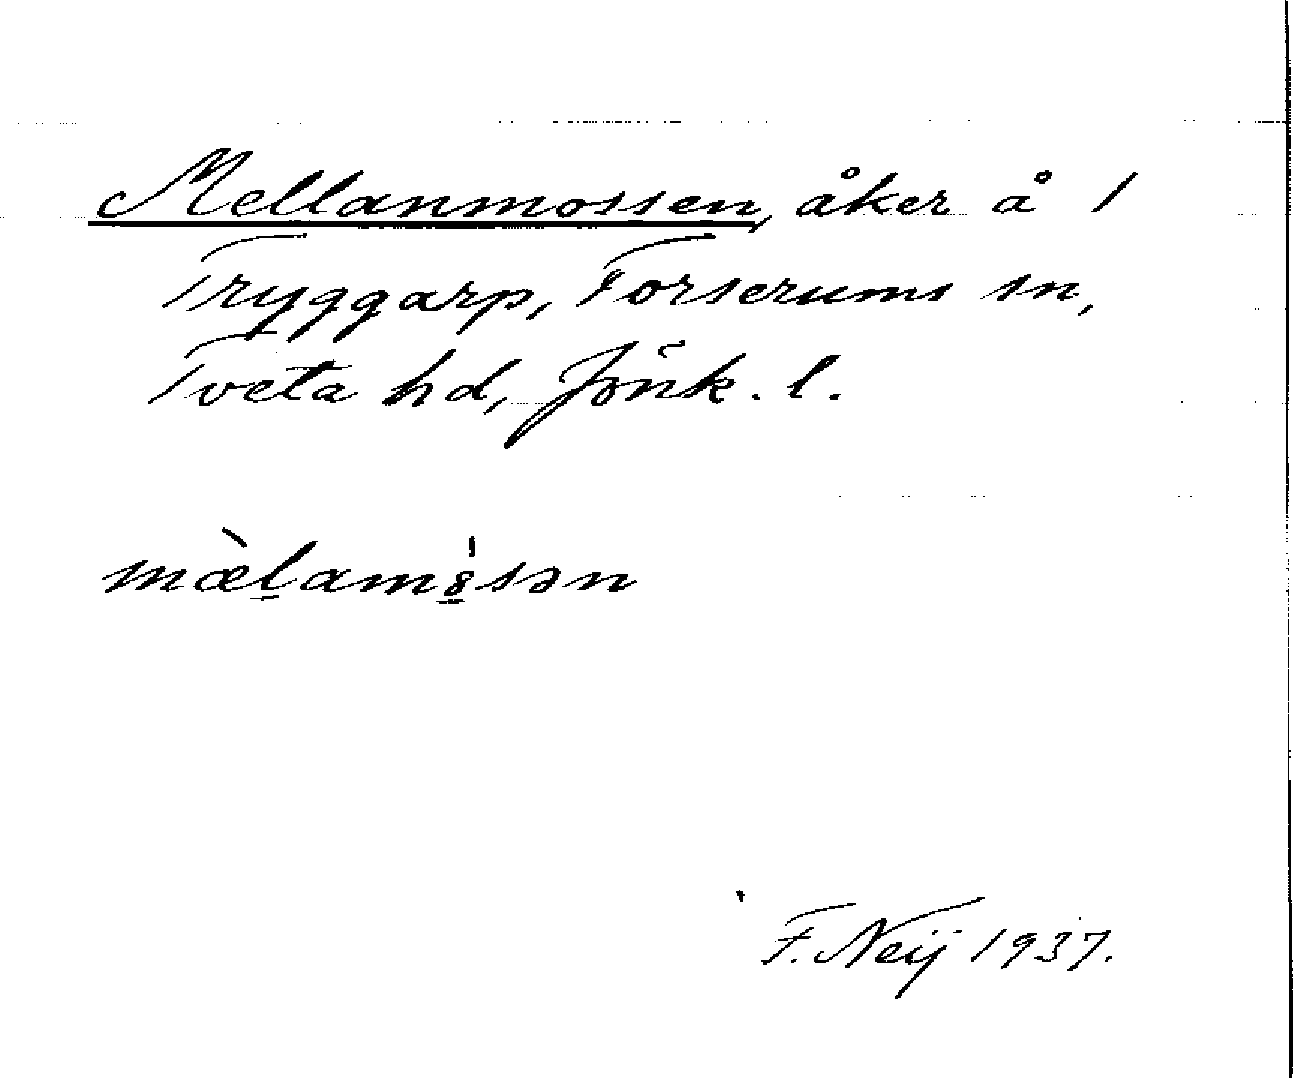 Mellanmossen, åker å 1
Tryggarp, Forserums sn,
Tveta hd, Jönk. l.
mæ̀l̠am8̠̍sən
F. Neij 1937.